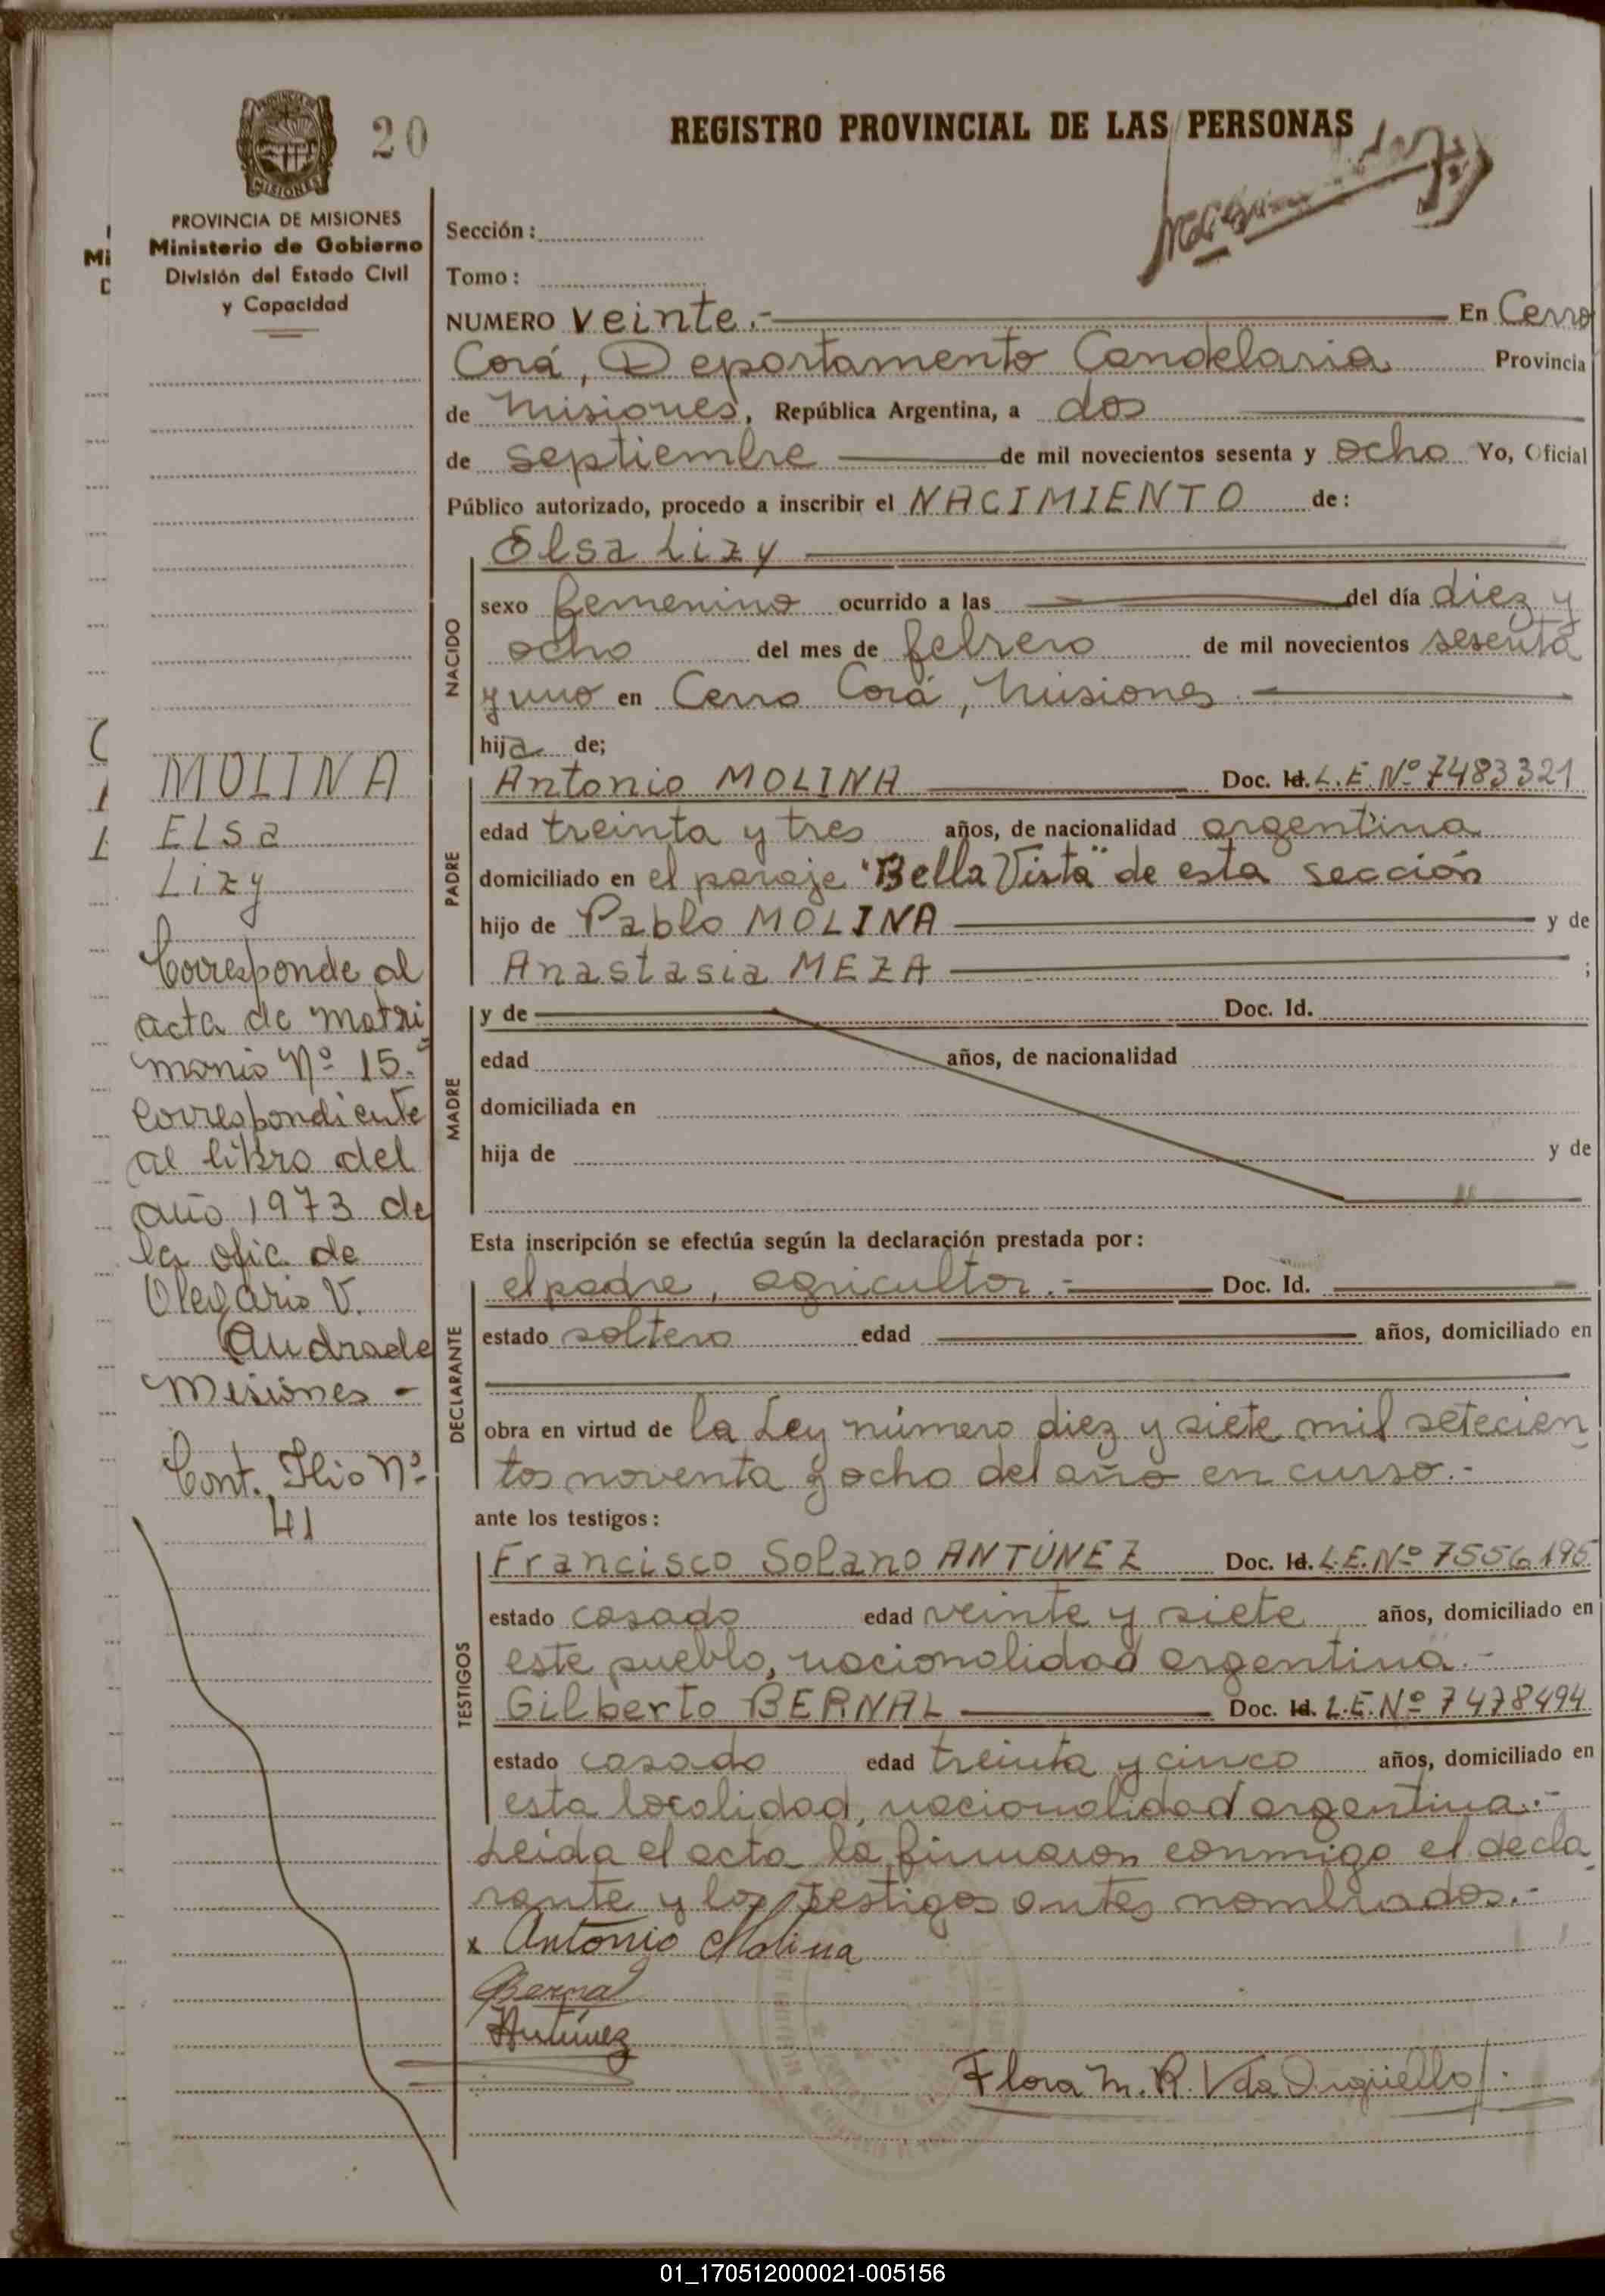 20
REGISTRO PROVINCIAL DE LAS PERSONAS
PROVINCIA DE MISIONES
Ministerio de Gobierno
División del Estado Civil
y Capacidad
MOLINA
ELSa
Lizy
Corresponde al
acta de matri
monio Nº 15.
correspondiente
al libro del
año 1973 de
la ofic. de
Olegario V.
Andrade
Misiones -
Cont. Flio Nº
41
Sección:
Tomo:
NUMERO veinte.- En Cerro
Corá, Departamento Candelaria Provincia
de Misiones, República Argentina, a dos
de septiembre de mil novecientos sesenta y ocho Yo, Oficial
Público autorizado, procedo a inscribir el NACIMIENTO de:
Elsa Lizy
NACIDO
sexo femenino ocurrido a las del día diez y
ocho del mes de febrero de mil novecientos sesenta
y uno en Cerro Corá, Misiones.
hija de;
PADRE
Antonio MOLINA Doc. Id. L.E. Nº 7483321
edad treinta y tres años, de nacionalidad argentina
domiciliado en el paraje "Bella Vista" de esta sección
hijo de Pablo MOLINA y de
Anastasia MEZA ;
MADRE
y de Doc. Id.
edad años, de nacionalidad
domiciliada en
hija de y de
Esta inscripción se efectúa según la declaración prestada por:
DECLARANTE
el padre, agricultor.- Doc. Id.
estado soltero edad años, domiciliado en
obra en virtud de la Ley número diez y siete mil setecien
tos noventa y ocho del año en curso.-
ante los testigos:
TESTIGOS
Francisco Solano ANTÚNEZ Doc. Id. L.E. Nº 7556195
estado casado edad veinte y siete años, domiciliado en
este pueblo, nacionalidad argentina.-
Gilberto BERNAL Doc. Id. L.E. Nº 7478494
estado casado edad treinta y cinco años, domiciliado en
esta localidad, nacionalidad argentina.-
Leida el acta la firmaron conmigo el decla
rante y los testigos antes nombrados.-
x Antonio Molina
Bernal
Antúnez
Flora M. R. Vda Argüello
01_170512000021-005156